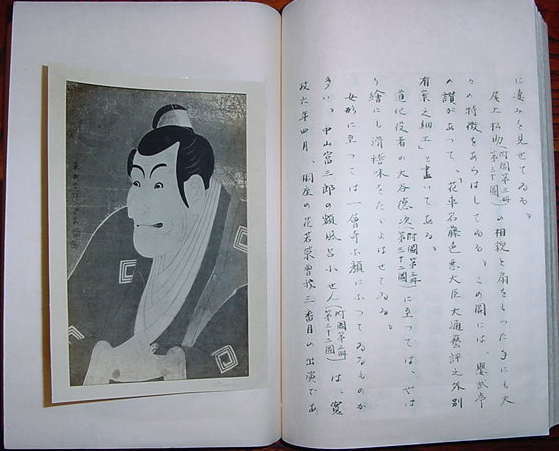 に凄みを見せてゐる。
尾上松助(附図第三冊 第三十図)の相貌と扇をもつた手にも夫
々の特徴をあらはしてゐる。この図には、
の讃があつて、「花車名藤色悪大臣大通藝評之外別
有家之細工」と書いてある。
道化役者の大谷徳次(附図第三冊 第三十二図)に至つては、
繪にし滑稽味をたゞよはせてゐる。
女形に至つては一層 顔になつてゐるものが
多い。中山富三郎の 風呂小せ人(附図第二冊 第二十二図)は、寛
政六年四月、桐座の花若葉曽我三番目の出演であ